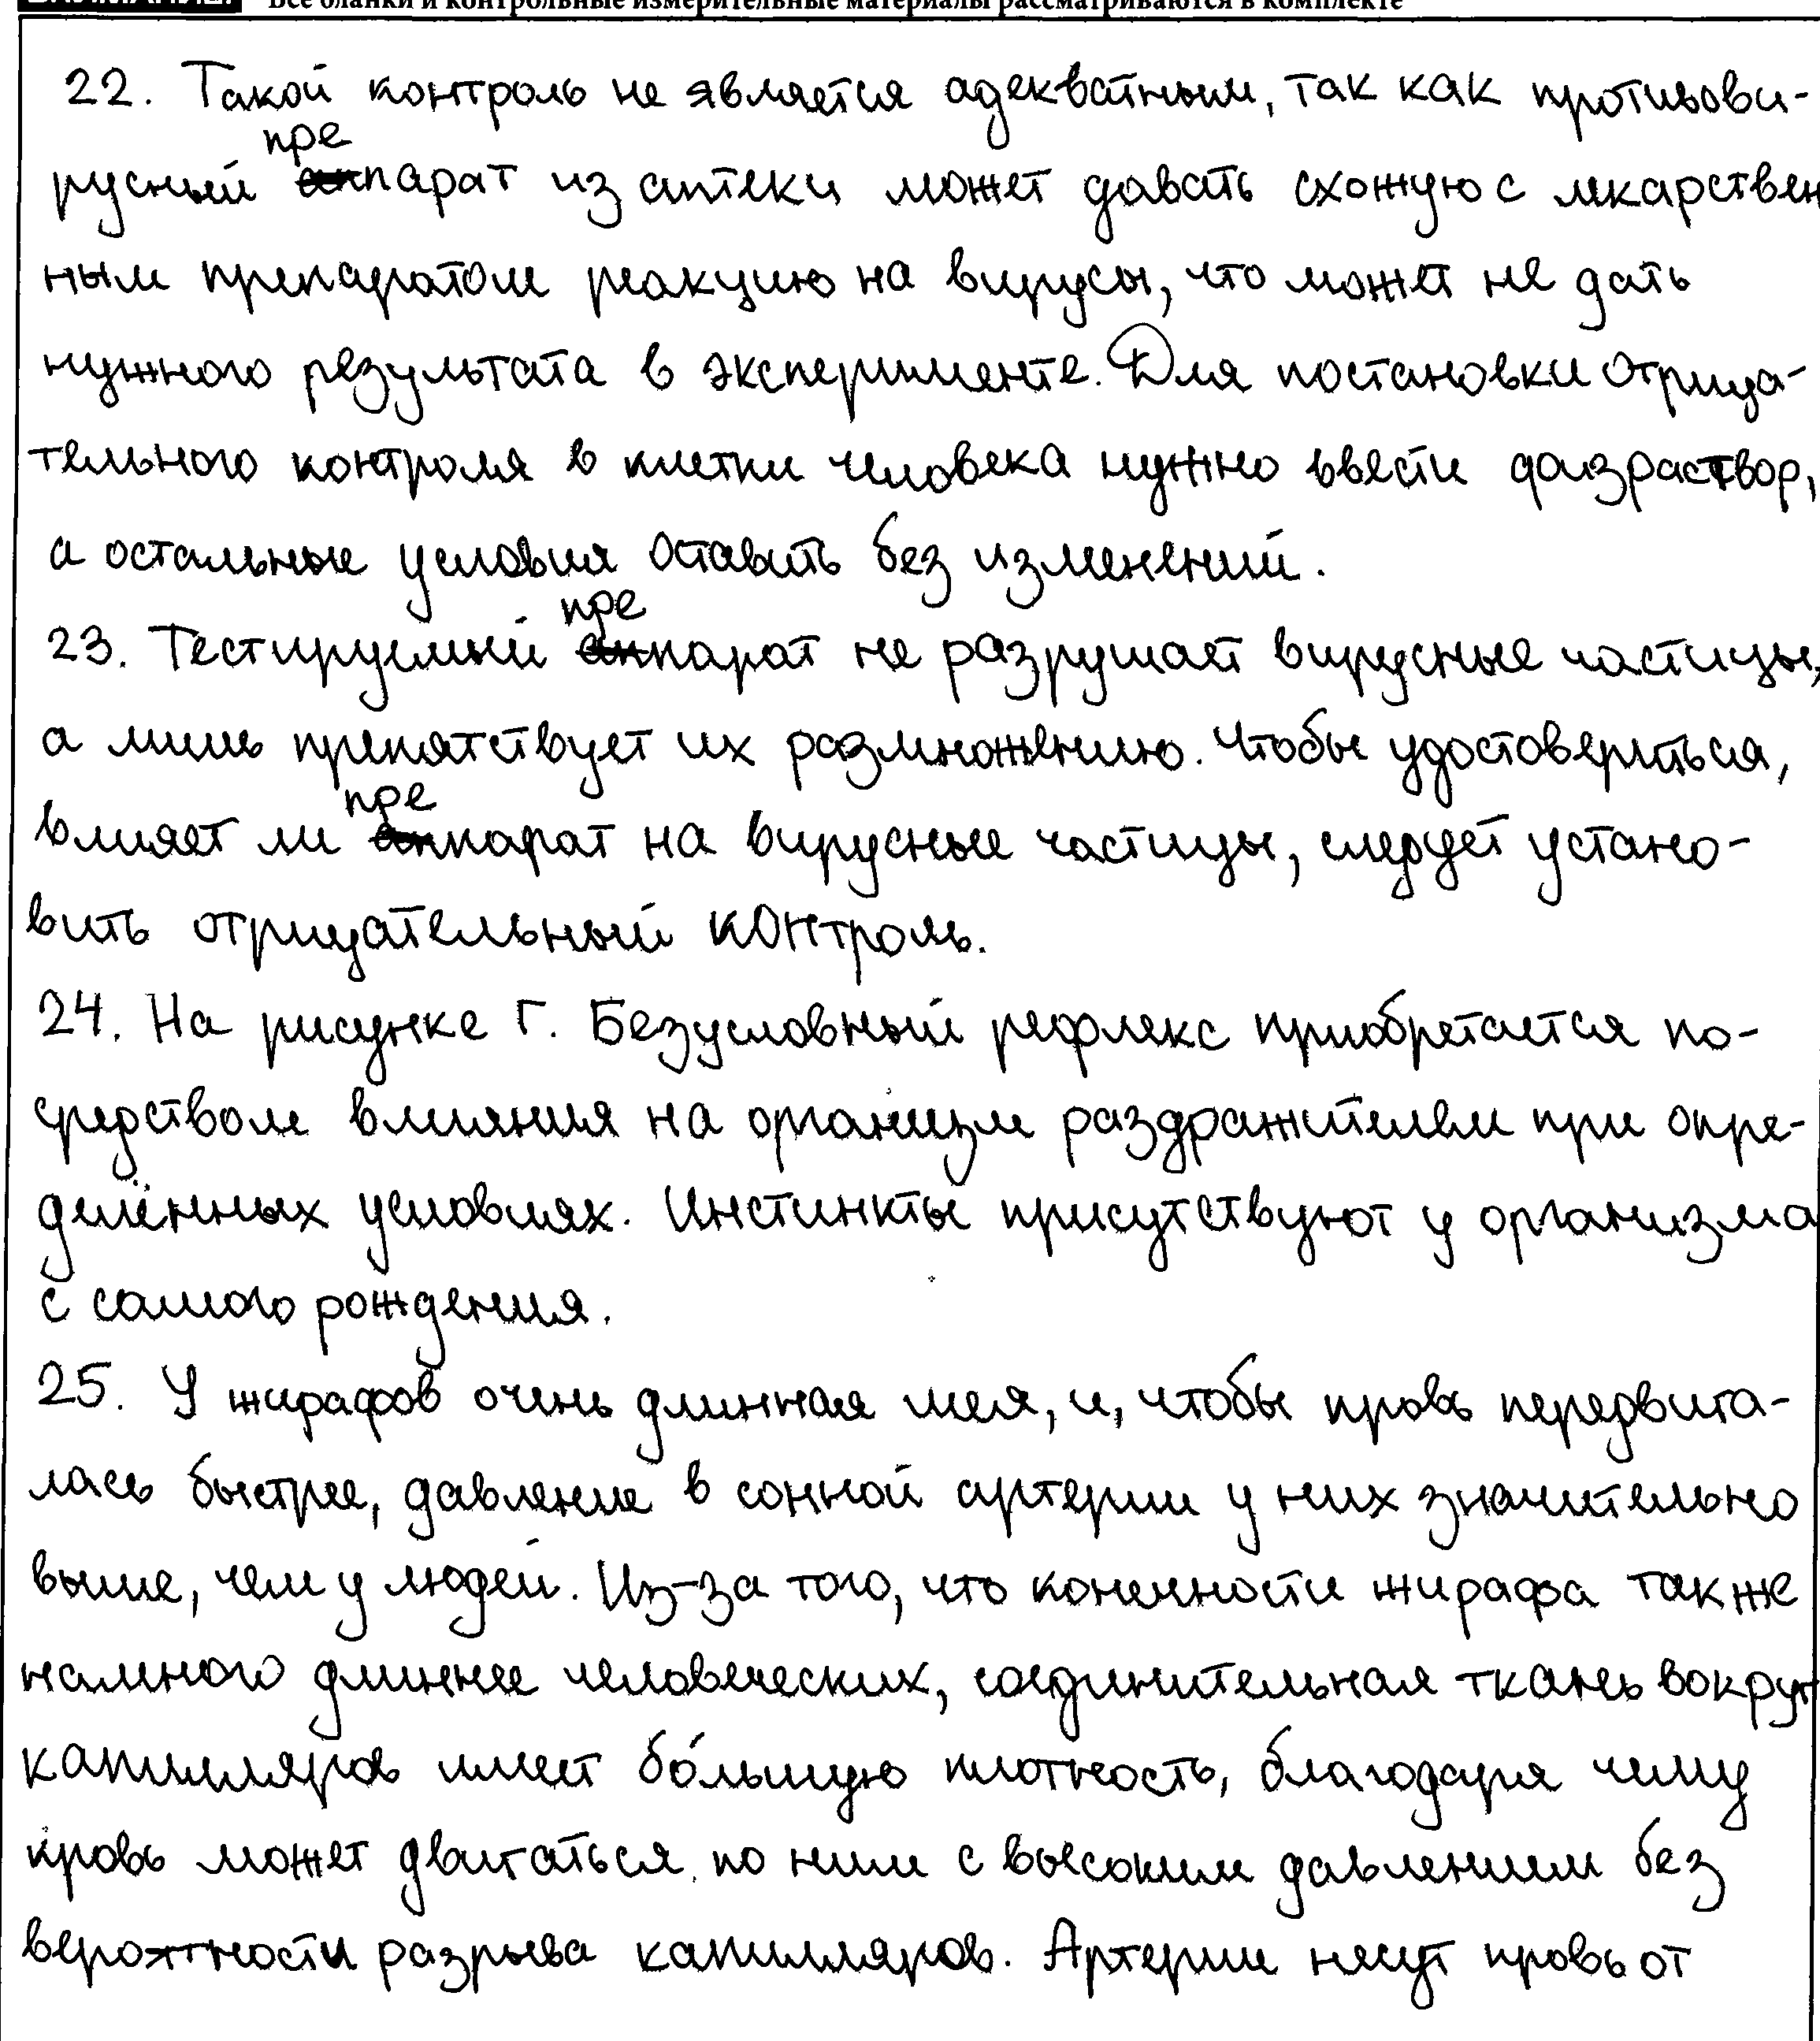 Все бланки и контрольные измерительные материалы рассматриваются в комплекте
22. Такой контроль не является адекватным, так как противови-
русный препарат из аптеки может давать схожую с лекарствен
ным препаратом реакцию на вирусы, что может не дать
нужного результата в эксперименте. Для постановки отрица-
тельного контроля в клетки человека нужно ввести физраствор,
а остальные условия оставить без изменений.
23. Тестируемый препарат не разрушает вирусные частицы,
а лишь препятствует их размножению. Чтобы удостовериться,
влияет ли препарат на вирусные частицы, следует устано-
вить отрицательный контроль.
24. На рисунке Г. Безусловный рефлекс приобретается по-
средством влияния на организм раздражителем при опре-
делённых условиях. Инстинкты присутствуют у организма
с самого рождения.
25. У жирафов очень длинная шея, и, чтобы кровь передвига-
лась быстрее, давление в сонной артерии у них значительно
выше, чем у людей. Из-за того, что конечности жирафа также
намного длиннее человеческих, соединительная ткань вокруг
капилляров имеет бо́льшую плотность, благодаря чему
кровь может двигаться по ним с высоким давлением без
вероятности разрыва капилляров. Артерии несут кровь от